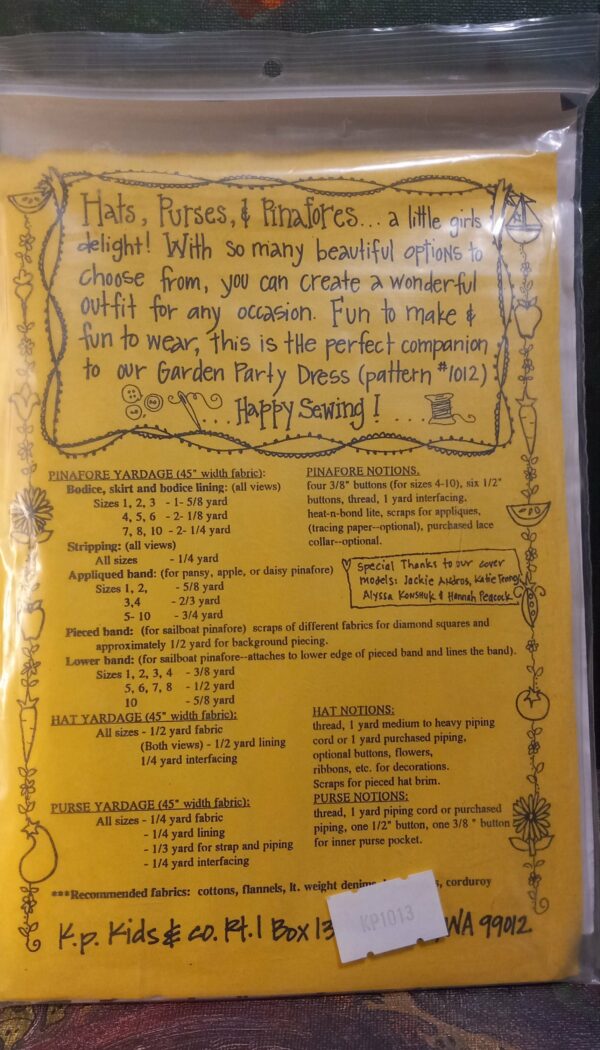 Hats, Purses, & Pinafores... a little girls
delight! With so many beautiful options to
choose from, you can create a wonderful
outfit for any occasion. Fun to make &
fun to wear, this is the perfect companion
to our Garden Party Dress (pattern #1012)
...Happy Sewing! ...
PINAFORE YARDAGE (45" width fabric):
Bodice, skirt and bodice lining: (all views)
Sizes 1, 2, 3 - 1- 5/8 yard
4, 5, 6 - 2- 1/8 yard
7, 8, 10 - 2- 1/4 yard
Stripping: (all views)
All sizes - 1/4 yard
Appliqued band: (for pansy, apple, or daisy pinafore)
Sizes 1, 2, - 5/8 yard
3,4 - 2/3 yard
5- 10 - 3/4 yard
PINAFORE NOTIONS.
four 3/8" buttons (for sizes 4-10), six 1/2"
buttons, thread, 1 yard interfacing,
heat-n-bond lite, scraps for appliques,
(tracing paper--optional), purchased lace
collar--optional.
Special Thanks to our cover
models: Jackie Katie
Alyssa & Hannah Peacock
Pieced band: (for sailboat pinafore) scraps of different fabrics for diamond squares and
approximately 1/2 yard for background piecing.
Lower band: (for sailboat pinafore--attaches to lower edge of pieced band and lines the band).
Sizes 1, 2, 3, 4 - 3/8 yard
5, 6, 7, 8 - 1/2 yard
10 - 5/8 yard
HAT YARDAGE (45" width fabric):
All sizes - 1/2 yard fabric
(Both views) - 1/2 yard lining
1/4 yard interfacing
HAT NOTIONS:
thread, 1 yard medium to heavy piping
cord or 1 yard purchased piping,
optional buttons, flowers,
ribbons, etc. for decorations.
Scraps for pieced hat brim.
PURSE YARDAGE (45" width fabric):
All sizes - 1/4 yard fabric
- 1/4 yard lining
- 1/3 yard for strap and piping
- 1/4 yard interfacing
PURSE NOTIONS:
thread, 1 yard piping cord or purchased
piping, one 1/2" button, one 3/8 " button
for inner purse pocket.
***Recommended fabrics: cottons, flannels, lt. weight denims, corduroy
K.p. Kids & co. Rt. 1 Box 13 WA 99012
KP1013